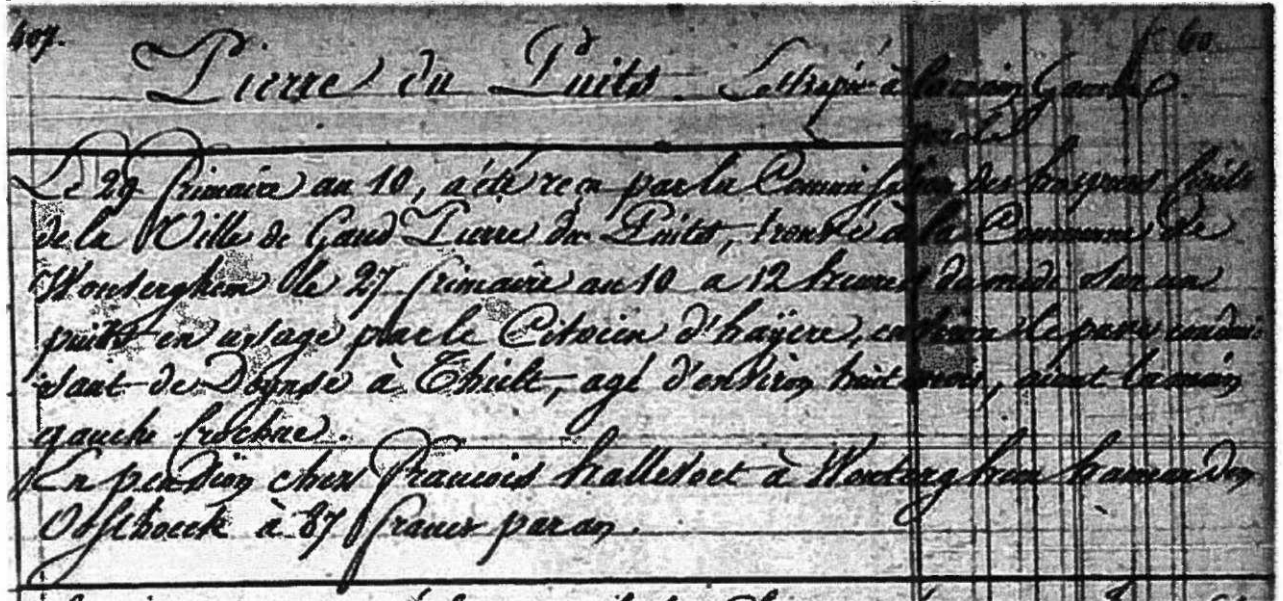 407. f. 60
Pierre du Puits Estropié à la main Gauche
Le 29 frimaire an 10, a été reçu par la Commission des hospices Civils
de la Ville de Gand Pierre du Puits, trouvé à la Commune de
Wonterghem le 27 frimaire an 10 à 12 heures du midi dans un
puits en usage par le Citoien d'haÿere, le pavé conduis
sant de Deynse à Thielt, agé d'environ huit mois, aiant la main
gauche Crochue.
En pension chez Francois hallevoet à Wonterghem hameau den
Oosthoeck à 87 francs par an.